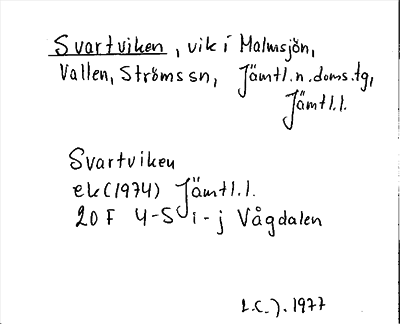 Svartviken, vik i Malmsjön,
Vallen, Ströms sn, Jämtl. n. doms. tg,
Jämtl. l.
Svartviken
ek (1974) Jämtl. l.
20 F 4-5 i-j Vågdalen
L.C.J. 1977